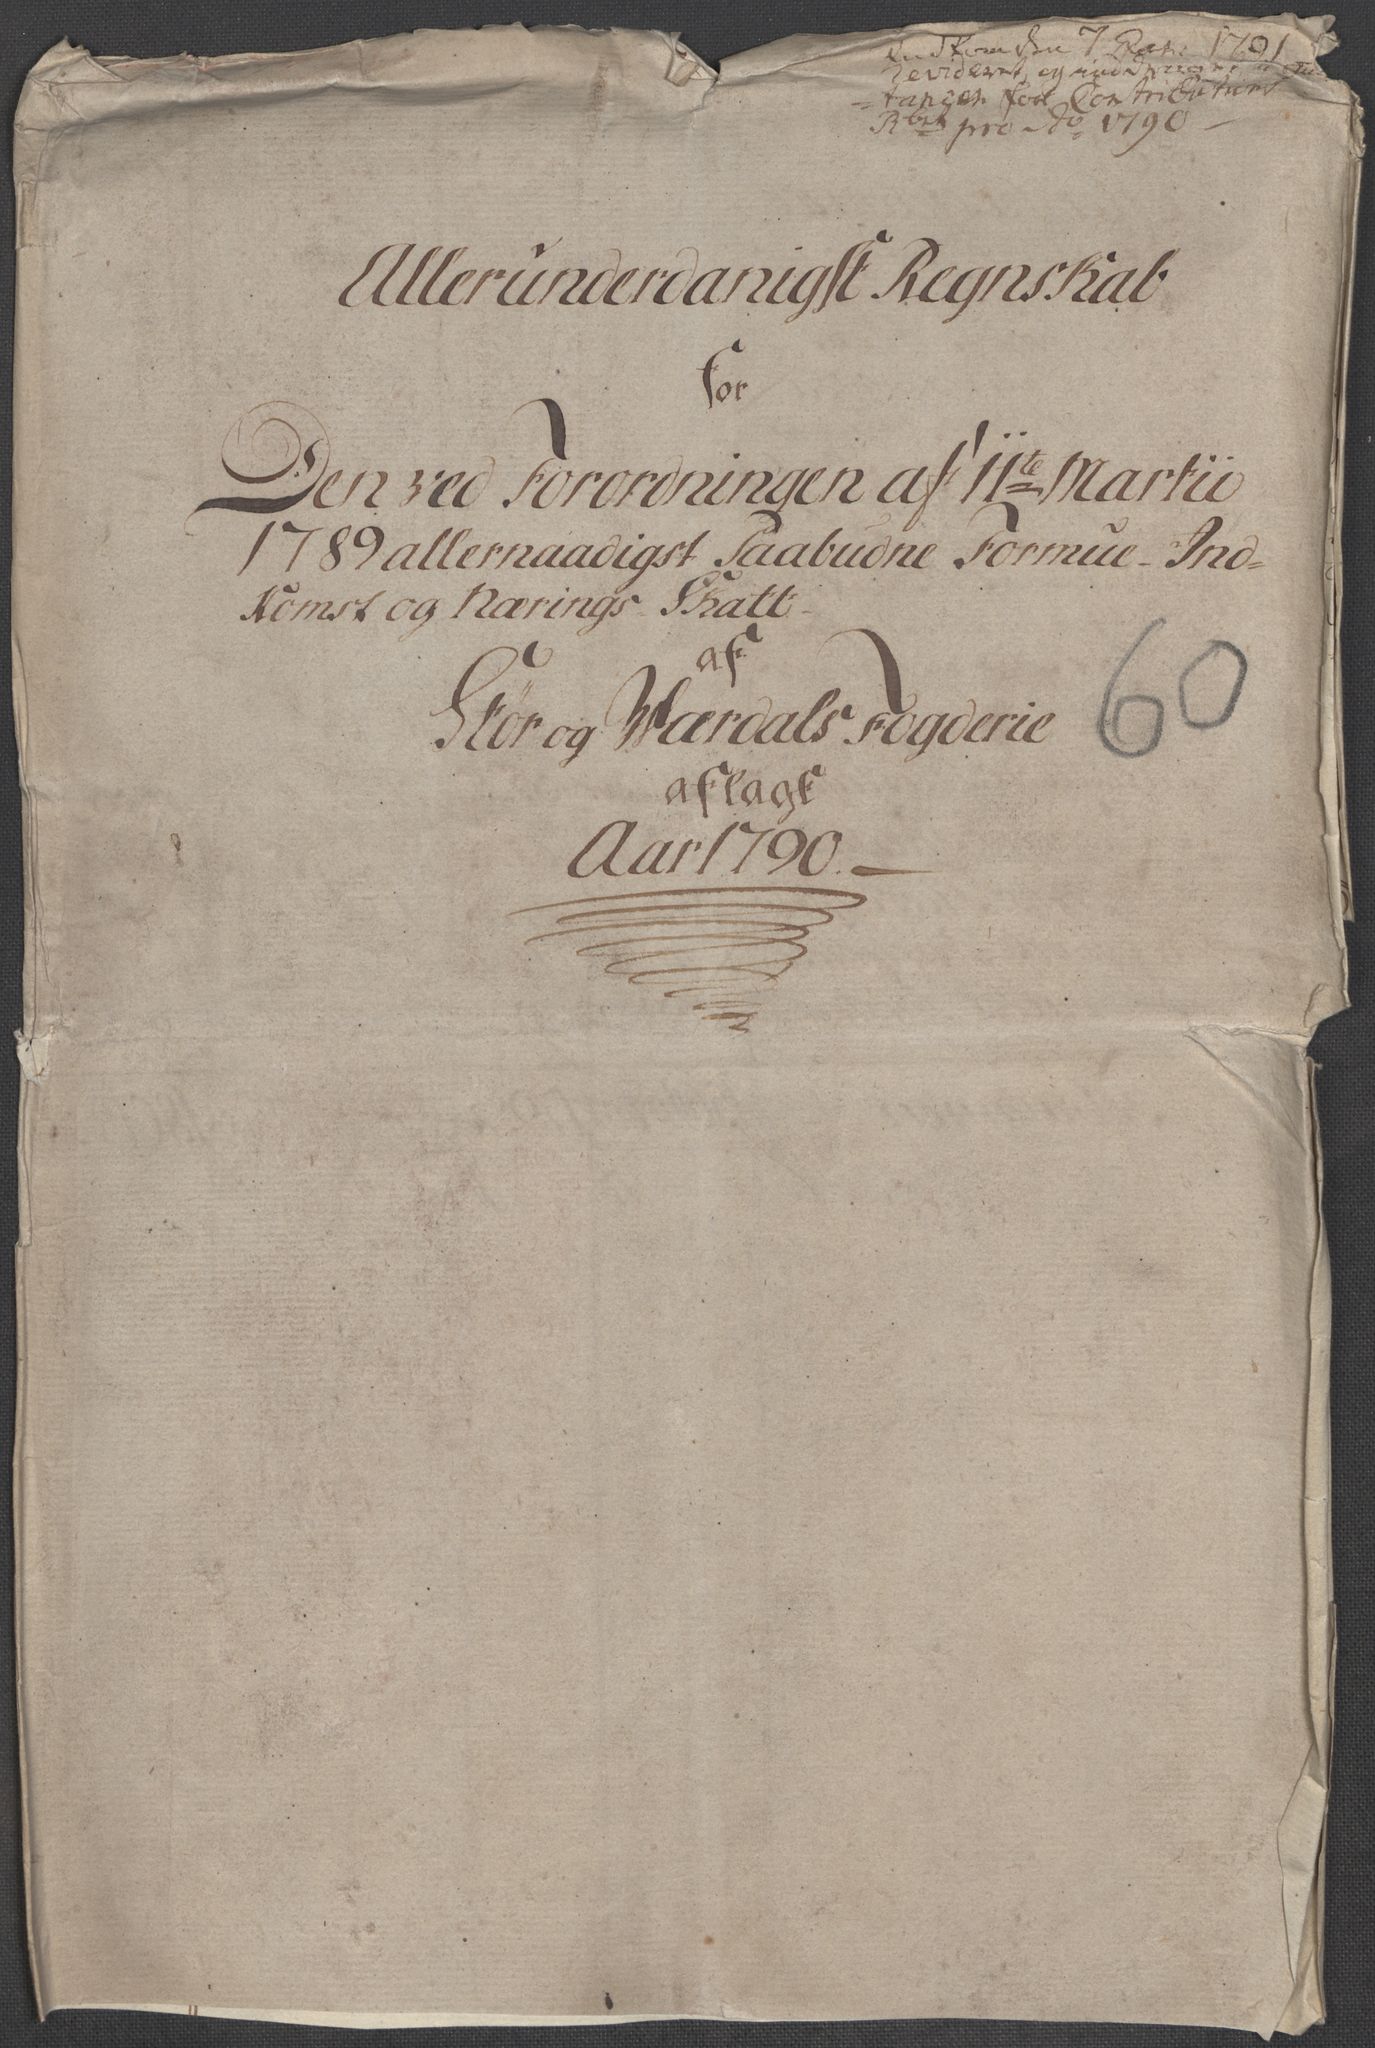 7 1791
Revideret, og
=tancen for Contributions
Rbsk pro Ao 1790
Allerunderdanigst Regnskab
for
Den ved Forordningen af 11te Martii
1789 allernaadigst Paabudne Formue- Ind=
Komst og Nærings Skatt
af
Stør og Wærdals Fogderie
60
aflagt
Aar 1790.